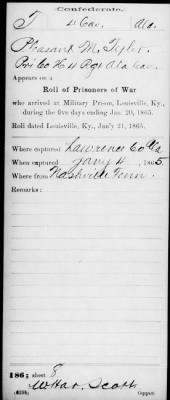 Confederate.
T 4 Cav. Ala.
Pleasant M. Tyler.
Pri Co H 4 Rgt Ala Cav.
Appears on a
Roll of Prisoners of War
who arrived at Military Prison, Louisville, Ky.,
during the five days ending Jan. 20, 1865.
Roll dated Louisville, Ky., Jan'y 21, 1865.
Where captured Lawrence Co Ala
When captured Jany 4, 1865.
Where from Nashville Tenn.
Remarks:
186 ; sheet 8
Scott
(639b) Copyist.